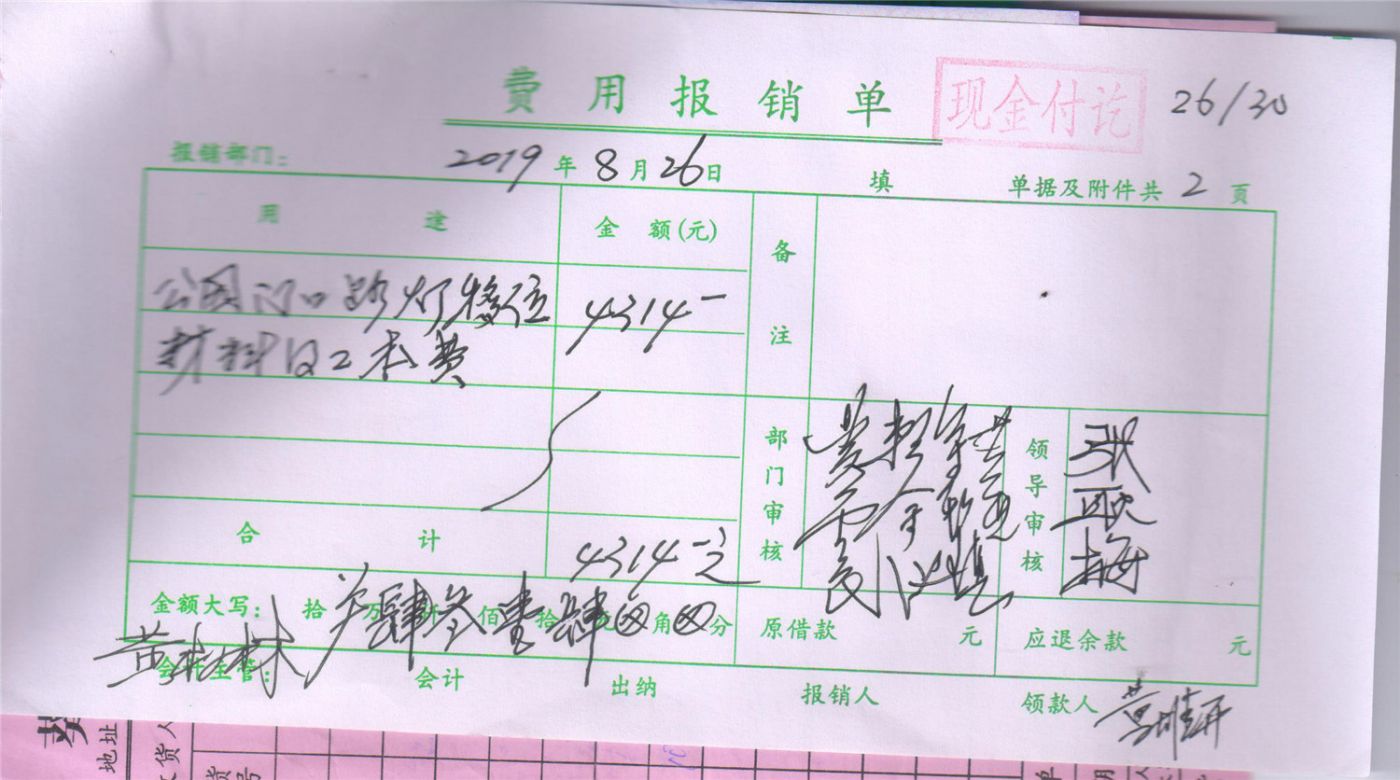 费用报销单
现金付讫
26/30
报销部门：
2019年8月26日
填
单据及附件共2页
用途
金额(元)
备注
公园门口路灯移位
4314-
材料及工本费
部门审核
领导审核
张
合计
4314-元
金额大写：拾万肆仟叁佰壹拾肆元⊗角⊗分
原借款 元
应退余款 元
会计主管：
会计
出纳
报销人
领款人
地址
货人
货号
单
用